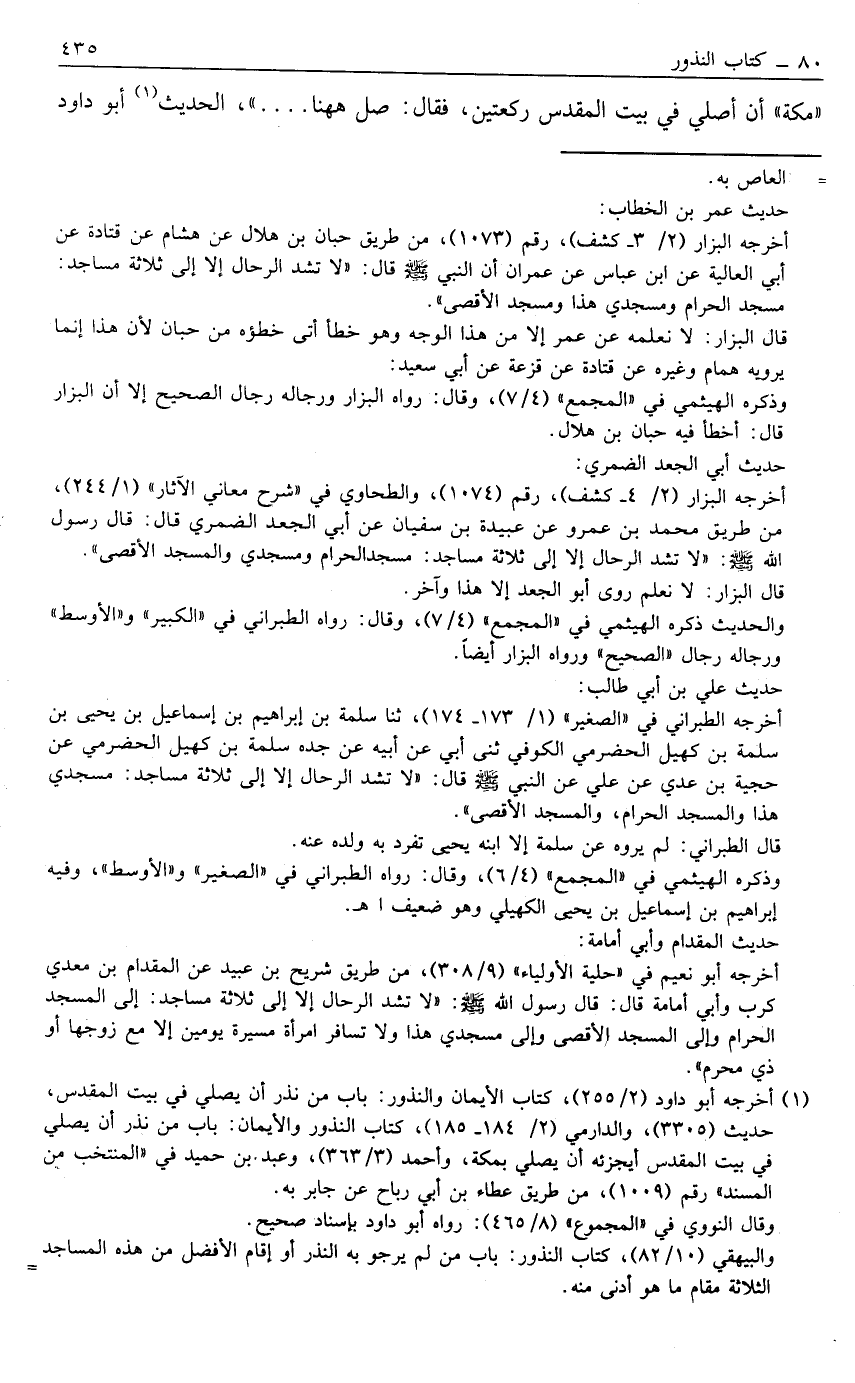 ٨٠ ـ كتاب النذور ٤٣٥
«مكة» أن أصلي في بيت المقدس ركعتين، فقال: صل ههنا....»، الحديث(١) أبو داود
= العاص به.
حديث عمر بن الخطاب:
أخرجه البزار (٢/ ٣ـ كشف)، رقم (١٠٧٣)، من طريق حبان بن هلال عن هشام عن قتادة عن
أبي العالية عن ابن عباس عن عمران أن النبي ﷺ قال: «لا تشد الرحال إلا إلى ثلاثة مساجد:
مسجد الحرام ومسجدي هذا ومسجد الأقصى».
قال البزار: لا نعلمه عن عمر إلا من هذا الوجه وهو خطأ أتى خطؤه من حبان لأن هذا إنما
يرويه همام وغيره عن قتادة عن قزعة عن أبي سعيد:
وذكره الهيثمي في «المجمع» (٧/٤)، وقال: رواه البزار ورجاله رجال الصحيح إلا أن البزار
قال: أخطأ فيه حبان بن هلال.
حديث أبي الجعد الضمري:
أخرجه البزار (٢/ ٤ـ كشف)، رقم (١٠٧٤)، والطحاوي في «شرح معاني الآثار» (٢٤٤/١)،
من طريق محمد بن عمرو عن عبيدة بن سفيان عن أبي الجعد الضمري قال: قال رسول
الله ﷺ: «لا تشد الرحال إلا إلى ثلاثة مساجد: مسجدالحرام ومسجدي والمسجد الأقصى».
قال البزار: لا نعلم روى أبو الجعد إلا هذا وآخر.
والحديث ذكره الهيثمي في «المجمع» (٧/٤)، وقال: رواه الطبراني في «الكبير» و«الأوسط»
ورجاله رجال «الصحيح» ورواه البزار أيضاً.
حديث علي بن أبي طالب:
أخرجه الطبراني في «الصغير» (١/ ١٧٣ـ ١٧٤)، ثنا سلمة بن إبراهيم بن إسماعيل بن يحيى بن
سلمة بن كهيل الحضرمي الكوفي ثنى أبي عن أبيه عن جده سلمة بن كهيل الحضرمي عن
حجية بن عدي عن علي عن النبي ﷺ قال: «لا تشد الرحال إلا إلى ثلاثة مساجد: مسجدي
هذا والمسجد الحرام، والمسجد الأقصى».
قال الطبراني: لم يروه عن سلمة إلا ابنه يحيى تفرد به ولده عنه.
وذكره الهيثمي في «المجمع» (٦/٤)، وقال: رواه الطبراني في «الصغير» و«الأوسط»، وفيه
إبراهيم بن إسماعيل بن يحيى الكهيلي وهو ضعيف ا هـ.
حديث المقدام وأبي أمامة:
أخرجه أبو نعيم في «حلية الأولياء» (٣٠٨/٩)، من طريق شريح بن عبيد عن المقدام بن معدي
كرب وأبي أمامة قال: قال رسول الله ﷺ: «لا تشد الرحال إلا إلى ثلاثة مساجد: إلى المسجد
الحرام وإلى المسجد الأقصى وإلى مسجدي هذا ولا تسافر امرأة مسيرة يومين إلا مع زوجها أو
ذي محرم».
(١) أخرجه أبو داود (٢٥٥/٢)، كتاب الأيمان والنذور: باب من نذر أن يصلي في بيت المقدس،
حديث (٣٣٠٥)، والدارمي (٢/ ١٨٤ـ ١٨٥)، كتاب النذور والأيمان: باب من نذر أن يصلي
في بيت المقدس أيجزئه أن يصلي بمكة، وأحمد (٣٦٣/٣)، وعبد بن حميد في «المنتخب من
المسند» رقم (١٠٠٩)، من طريق عطاء بن أبي رباح عن جابر به.
وقال النووي في «المجموع» (٤٦٥/٨): رواه أبو داود بإسناد صحيح.
والبيهقي (٨٢/١٠)، كتاب النذور: باب من لم يرجو به النذر أو إقام الأفضل من هذه المساجد
الثلاثة مقام ما هو أدنى منه. =